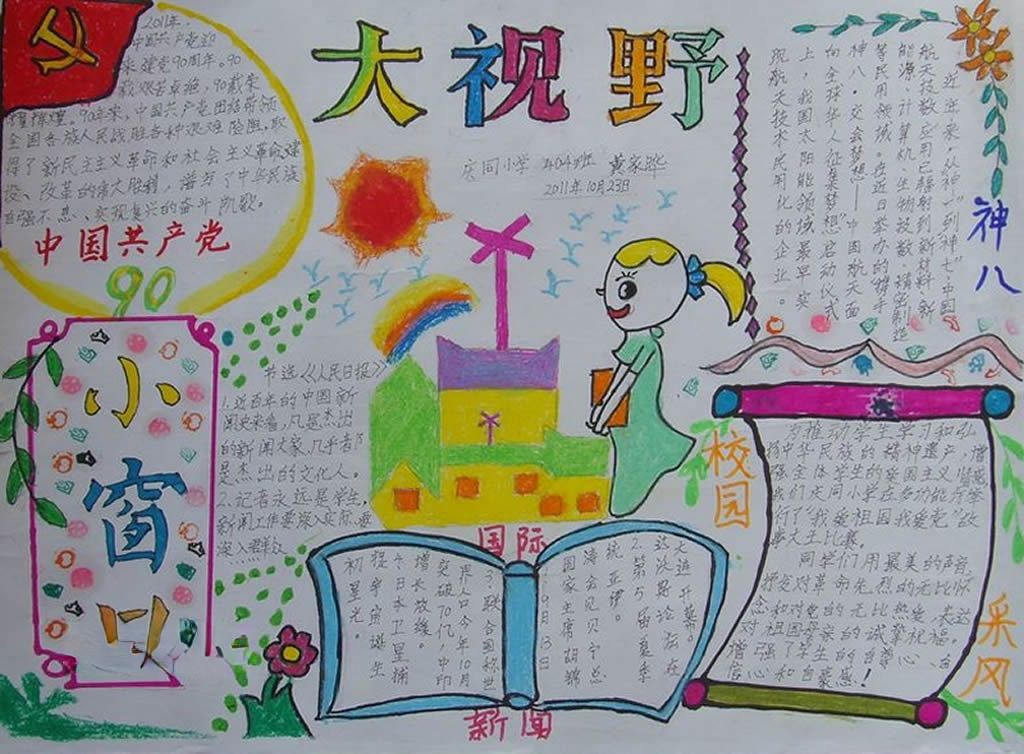 小窗口 大视野
庆同小学 404班 黄家晔
2011年10月23日
2011年,
中国共产党迎
来建党90周年。90
载艰苦卓绝,90载荣
耀辉煌。90年来,中国共产党团结带领
全国各族人民战胜各种艰难险阻,取
得了新民主主义革命和社会主义革命建
设、改革的伟大胜利,谱写了中华民族
自强不息、实现复兴的奋斗凯歌。
中国共产党
90
节选《人民日报》
1.近百年的中国新
闻史来看,凡是杰出
的新闻大家,几乎都
是杰出的文化人。
2.记者永远是学生,
新闻工作要深入实际、要
深入群众
神八
近年来,从"神一"到"神七",中国
航天技数应用已辐射到新材料、新
能源、计算机、生物技数、精密制造
等民用领域。在近日举办的"携手
神八·交会梦想——中国航天面
向全球华人征集梦想"启动仪式
上,我国太阳能领域最早实
现航天技术民用化的企业。
校园
采风
为推动学生学习和弘
扬中华民族的精神遗产,增
强全体学生的爱国主义情感
我们庆同小学在多功能厅举
行了"我爱祖国我爱党"故
事大王比赛。
同学们用最美的声音,
抒发对革命先烈的无比怀
念和对党的无比热爱,表达
对祖国母亲的诚挚祝福。
增强了学生的自尊心、自
信心和自豪感!
国际
新闻
大连开幕。
达沃斯论坛在
2.第5届夏季
统亚伊。
涛会见贝宁总
国家主席胡锦
9月13日
3.联合国称世
界人口今年10月
突破70亿,中印
增长放缓。
4.日本卫星捕
捉宇宙诞生
初星光。